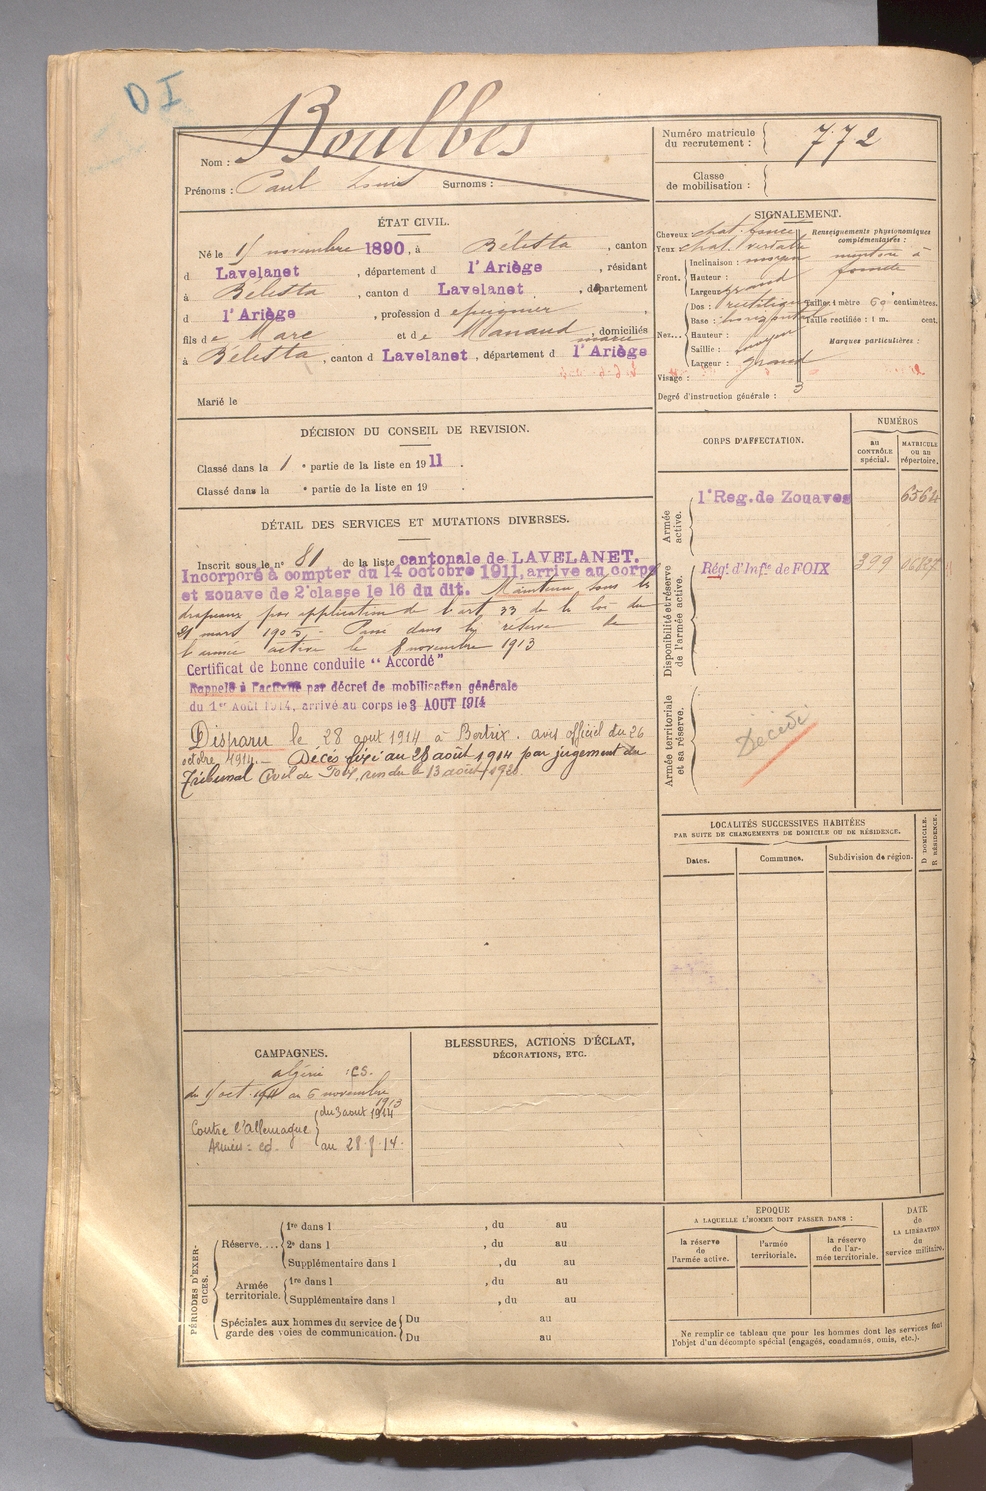 DI
Boulbès
Nom :
Prénoms : Paul Louis Surnoms :
Numéro matricule
du recrutement : 772
Classe
de mobilisation :
ÉTAT CIVIL.
Né le 15 novembre 1890, à Bélesta, canton
d Lavelanet, département d l'Ariège, résidant
à Bélesta, canton d Lavelanet, département
d l'Ariège, profession d
fils de Marc et de Manaud marie, domiciliés
à Bélesta, canton d Lavelanet, département d l'Ariège
Marié le
SIGNALEMENT.
Cheveux chat. foncé
Yeux chat. verdâtre
Front. Inclinaison : moyen
Hauteur :
Largeur : grand
Nez... Dos : rectiligne
Base : horizontal
Hauteur :
Saillie : moyen
Largeur : grand
Visage :
Renseignements physionomiques
complémentaires :
menton à
Taille : 1 mètre 60 centimètres.
Taille rectifiée : 1 m. cent.
Marques particulières :
Degré d'instruction générale : 3
DÉCISION DU CONSEIL DE REVISION.
Classé dans la 1e partie de la liste en 1911.
Classé dans la e partie de la liste en 19 .
CORPS D'AFFECTATION.
NUMÉROS
au
CONTRÔLE
spécial.
MATRICULE
ou au
répertoire.
Armée
active.
1e Reg. de Zouaves
Disponibilité et réserve
de l'armée active.
Régt d'Inf.ie de FOIX 399
Armée territoriale
et sa réserve.
Décédé
DÉTAIL DES SERVICES ET MUTATIONS DIVERSES.
Inscrit sous le n° 81 de la liste cantonale de LAVELANET.
Incorporé à compter du 14 octobre 1911, arrive au corps
et zouave de 2e classe le 16 du dit. Maintenu sous les
drapeaux par application de l'art 33 de la loi du
21 mars 1905. - Passé dans la réserve de
l'armée active le 8 novembre 1913
Certificat de bonne conduite "Accordé"
Rappelé à l'activité par décret de mobilisation générale
du 1er AOUT 1914, arrivé au corps le 3 AOUT 1914
Disparu le 28 août 1914 à Bertrix. avis officiel du 26
octobre 1914. - Décès fixé au 28 août 1914 par jugement du
Tribunal Civil de Foix, rendu le 13 août 1920
LOCALITÉS SUCCESSIVES HABITÉES
PAR SUITE DE CHANGEMENTS DE DOMICILE OU DE RÉSIDENCE.
Dates.
Communes.
Subdivision de région.
D DOMICILE.
R RÉSIDENCE.
CAMPAGNES.
Algérie : CS.
du 15 oct. 1911 au 6 novembre
1913
Contre l'Allemagne
du 3 août 1914
Armées : cd. au 28-8-14.
BLESSURES, ACTIONS D'ÉCLAT,
DÉCORATIONS, ETC.
PÉRIODES D'EXER-
CICES.
Réserve....
1re dans l , du au
2e dans l , du au
Supplémentaire dans l , du au
Armée
territoriale.
1re dans l , du au
Supplémentaire dans l , du au
Spéciales aux hommes du service de
garde des voies de communication.
Du au
Du au
EPOQUE
A LAQUELLE L'HOMME DOIT PASSER DANS :
la réserve
de
l'armée active.
l'armée
territoriale.
la réserve
de l'ar-
mée territoriale.
DATE
de
LA LIBÉRATION
du
service militaire.
Ne remplir ce tableau que pour les hommes dont les services font
l'objet d'un décompte spécial (engagés, condamnés, omis, etc.).